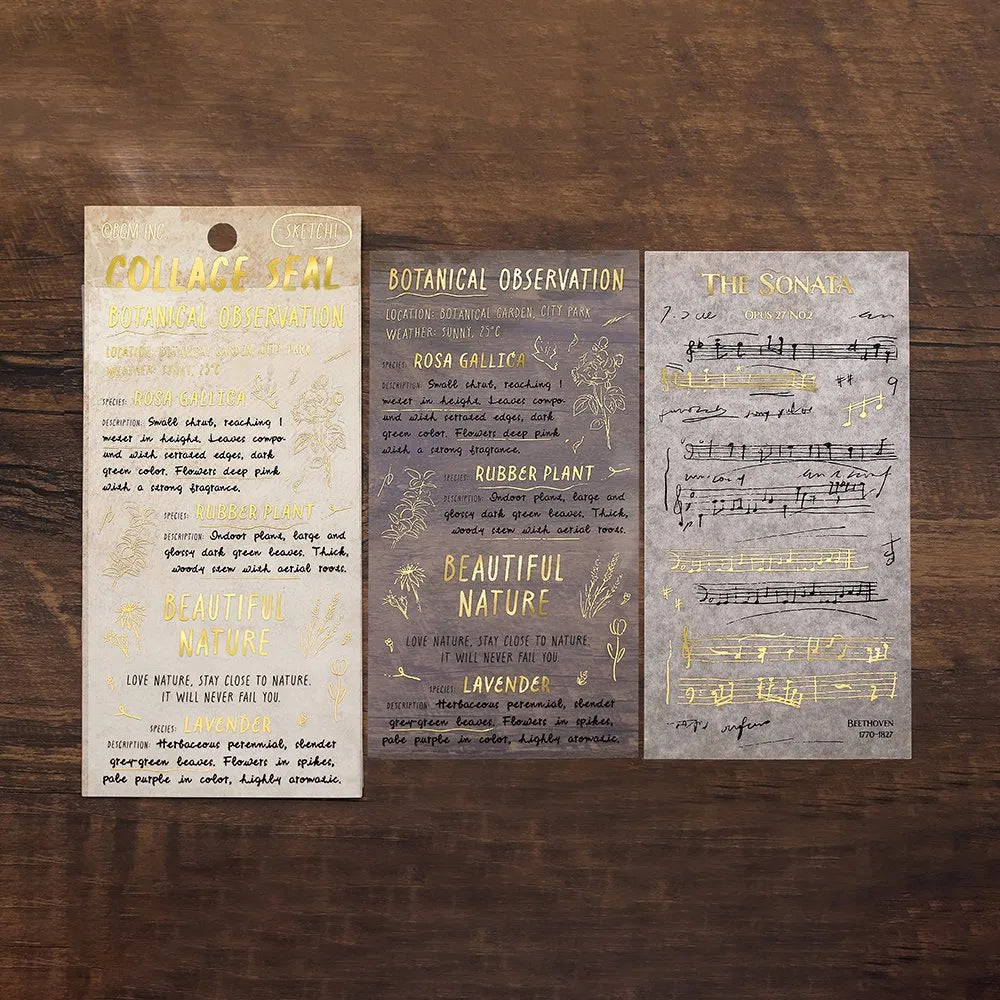 ©BGM INC.
SKETCH!
COLLAGE SEAL
BOTANICAL OBSERVATION
LOCATION: BOTANICAL GARDEN, CITY PARK
WEATHER: SUNNY, 25°C
SPECIES: ROSA GALLICA
DESCRIPTION: Small shrub, reaching 1
meter in height. Leaves compo-
und with serrated edges, dark
green color. Flowers deep pink
with a strong fragrance.
SPECIES: RUBBER PLANT
DESCRIPTION: Indoor plant, large and
glossy dark green leaves. Thick,
woody stem with aerial roots.
BEAUTIFUL
NATURE
LOVE NATURE, STAY CLOSE TO NATURE.
IT WILL NEVER FAIL YOU.
SPECIES: LAVENDER
DESCRIPTION: Herbaceous perennial, slender
grey-green leaves. Flowers in spikes,
pale purple in color, highly aromatic.
BOTANICAL OBSERVATION
LOCATION: BOTANICAL GARDEN, CITY PARK
WEATHER: SUNNY, 25°C
SPECIES: ROSA GALLICA
DESCRIPTION: Small shrub, reaching 1
meter in height. Leaves compo-
und with serrated edges, dark
green color. Flowers deep pink
with a strong fragrance.
SPECIES: RUBBER PLANT
DESCRIPTION: Indoor plant, large and
glossy dark green leaves. Thick,
woody stem with aerial roots.
BEAUTIFUL
NATURE
LOVE NATURE, STAY CLOSE TO NATURE.
IT WILL NEVER FAIL YOU.
SPECIES: LAVENDER
DESCRIPTION: Herbaceous perennial, slender
grey-green leaves. Flowers in spikes,
pale purple in color, highly aromatic.
THE SONATA
OPUS 27 NO.2
BEETHOVEN
1770-1827